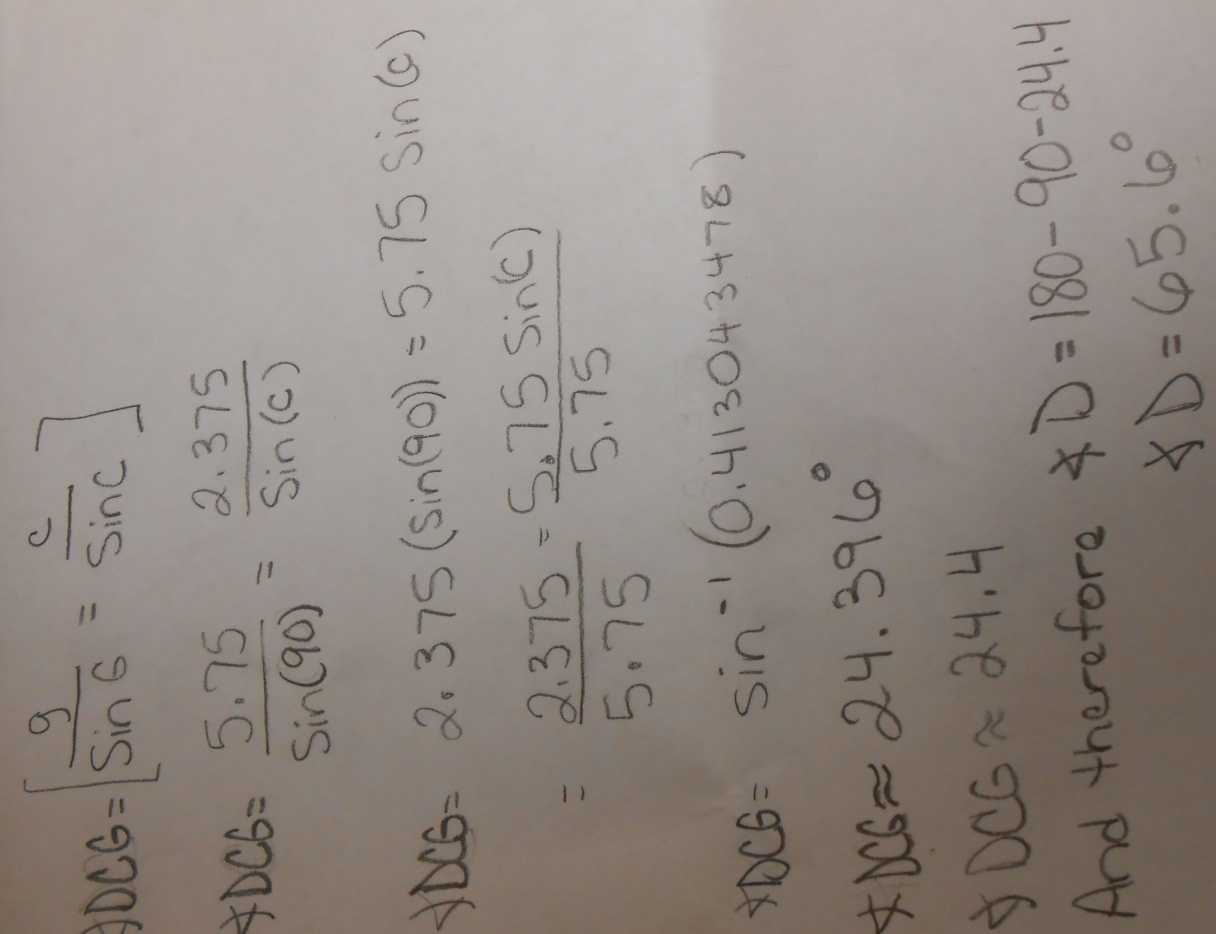 ∡DCG = [g/Sin G = c/Sin C]
∡DCG = 5.75/Sin(90) = 2.375/Sin(c)
∡DCG = 2.375(Sin(90)) = 5.75 Sin(c)
= 2.375/5.75 = 5.75 Sin(c)/5.75
∡DCG = Sin⁻¹(0.413043478)
∡DCG ≈ 24.396°
∡DCG ≈ 24.4
And therefore ∡D = 180-90-24.4
∡D = 65.6°